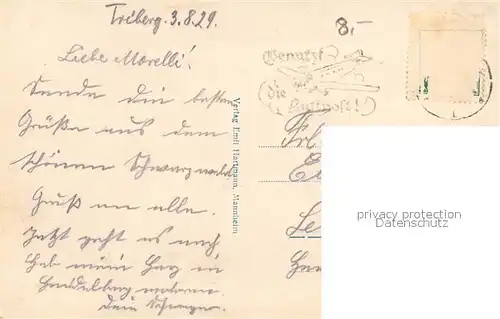 Triberg. 3.8.29.
8,-
Liebe Morelli!
Sende Dir besten
Grüße aus dem
schönen Schwarzwald
Gruß an alle.
Jetzt geht es nach
Hab mein Herz in
Heidelberg verloren.
Dein
Verlag Emil Hartmann, Mannheim.
Benutzt
die
Luftpost!
Frl
privacy protection
Datenschutz